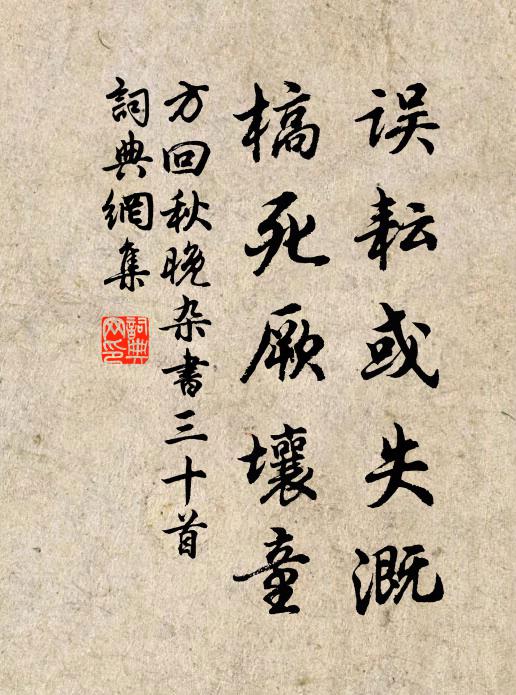 误耘或失溉
槁死厥壤童
方回秋晚杂书三十首
詞典網集
詞典
网印